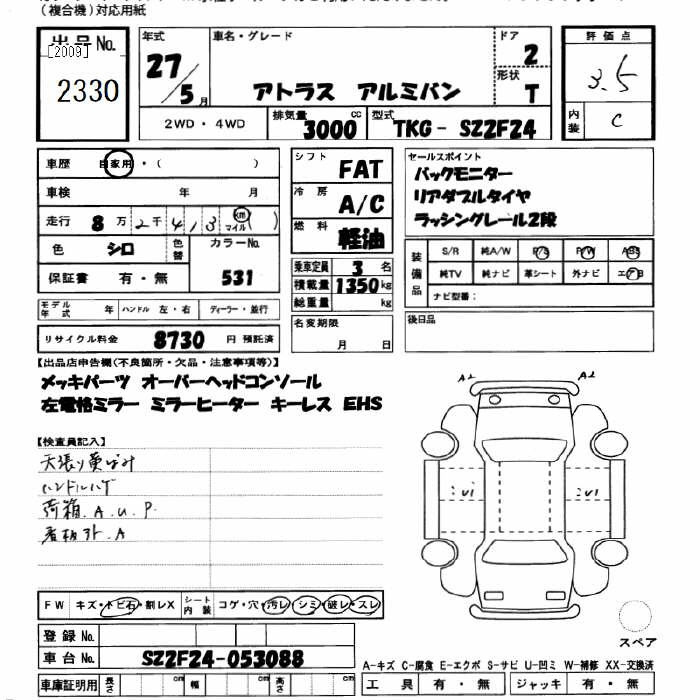 (複合機)対応用紙
出品No.
[2009]
2330
年式
27/5月
車名・グレード
アトラス アルミバン
ドア
2
形状
T
2WD・4WD
排気量
3000 cc
型式
TKG- SZ2F24
評価点
3.5
内装
C
車歴 自家用・( )
車検 年 月
走行 8万2千413 km マイル( )
色 シロ 色替 カラーNo.
保証書 有・無 531
モデル年式 年 ハンドル 左・右 ディーラー・並行
リサイクル料金 8730 円 預託済
シフト FAT
冷房 A/C
燃料 軽油
乗車定員 3 名
積載量 1350 kg
総重量 kg
名変期限
月 日
セールスポイント
バックモニター
リアダブルタイヤ
ラッシングレール2段
装備品
S/R 純A/W P/S P/W ABS
純TV 純ナビ 革シート 外ナビ エアB
ナビ型番:
後日品
【出品店申告欄(不良箇所・欠品・注意事項等)】
メッキパーツ オーバーヘッドコンソール
左電格ミラー ミラーヒーター キーレス EHS
【検査員記入】
天張り黄ばみ
ハンドルハゲ
荷箱. A. U. P.
看板外. A
A2 A2
FW キズ・トビ石・割レX シート内装 コゲ・穴・汚レ・シミ・破レ・スレ
登録No.
車台No. SZ2F24-053088
車庫証明用 長さ cm 幅 cm 高さ cm
スペア
A-キズ C-腐食 E-エクボ S-サビ U-凹ミ W-補修 XX-交換済
工具 有・無 ジャッキ 有・無